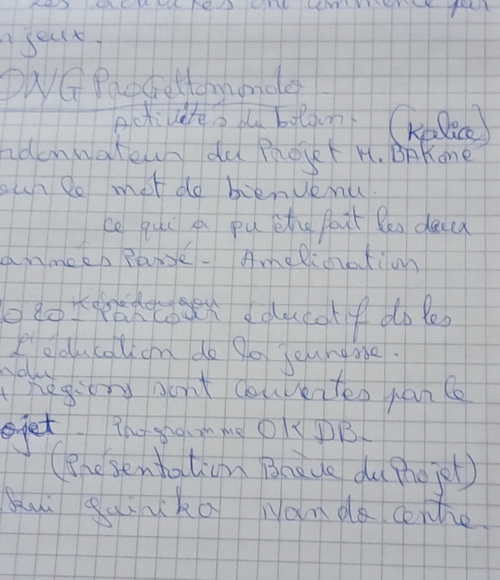 les activités ont commencé par
jeux.
ONG ProGettomondo
Activités du bilan. (Kalice)
ordonnateur du Projet M. BAKONE
our le mot de bienvenu.
ce qui a pu être fait les deux
années Passé - Amelioration
Kénédougou
Parcours éducatif ds les
l'éducation de la jeunesse.
régions sont couvertes par le
ojet - Programme OKDB.
(Présentation Brève du Projet)
centre.